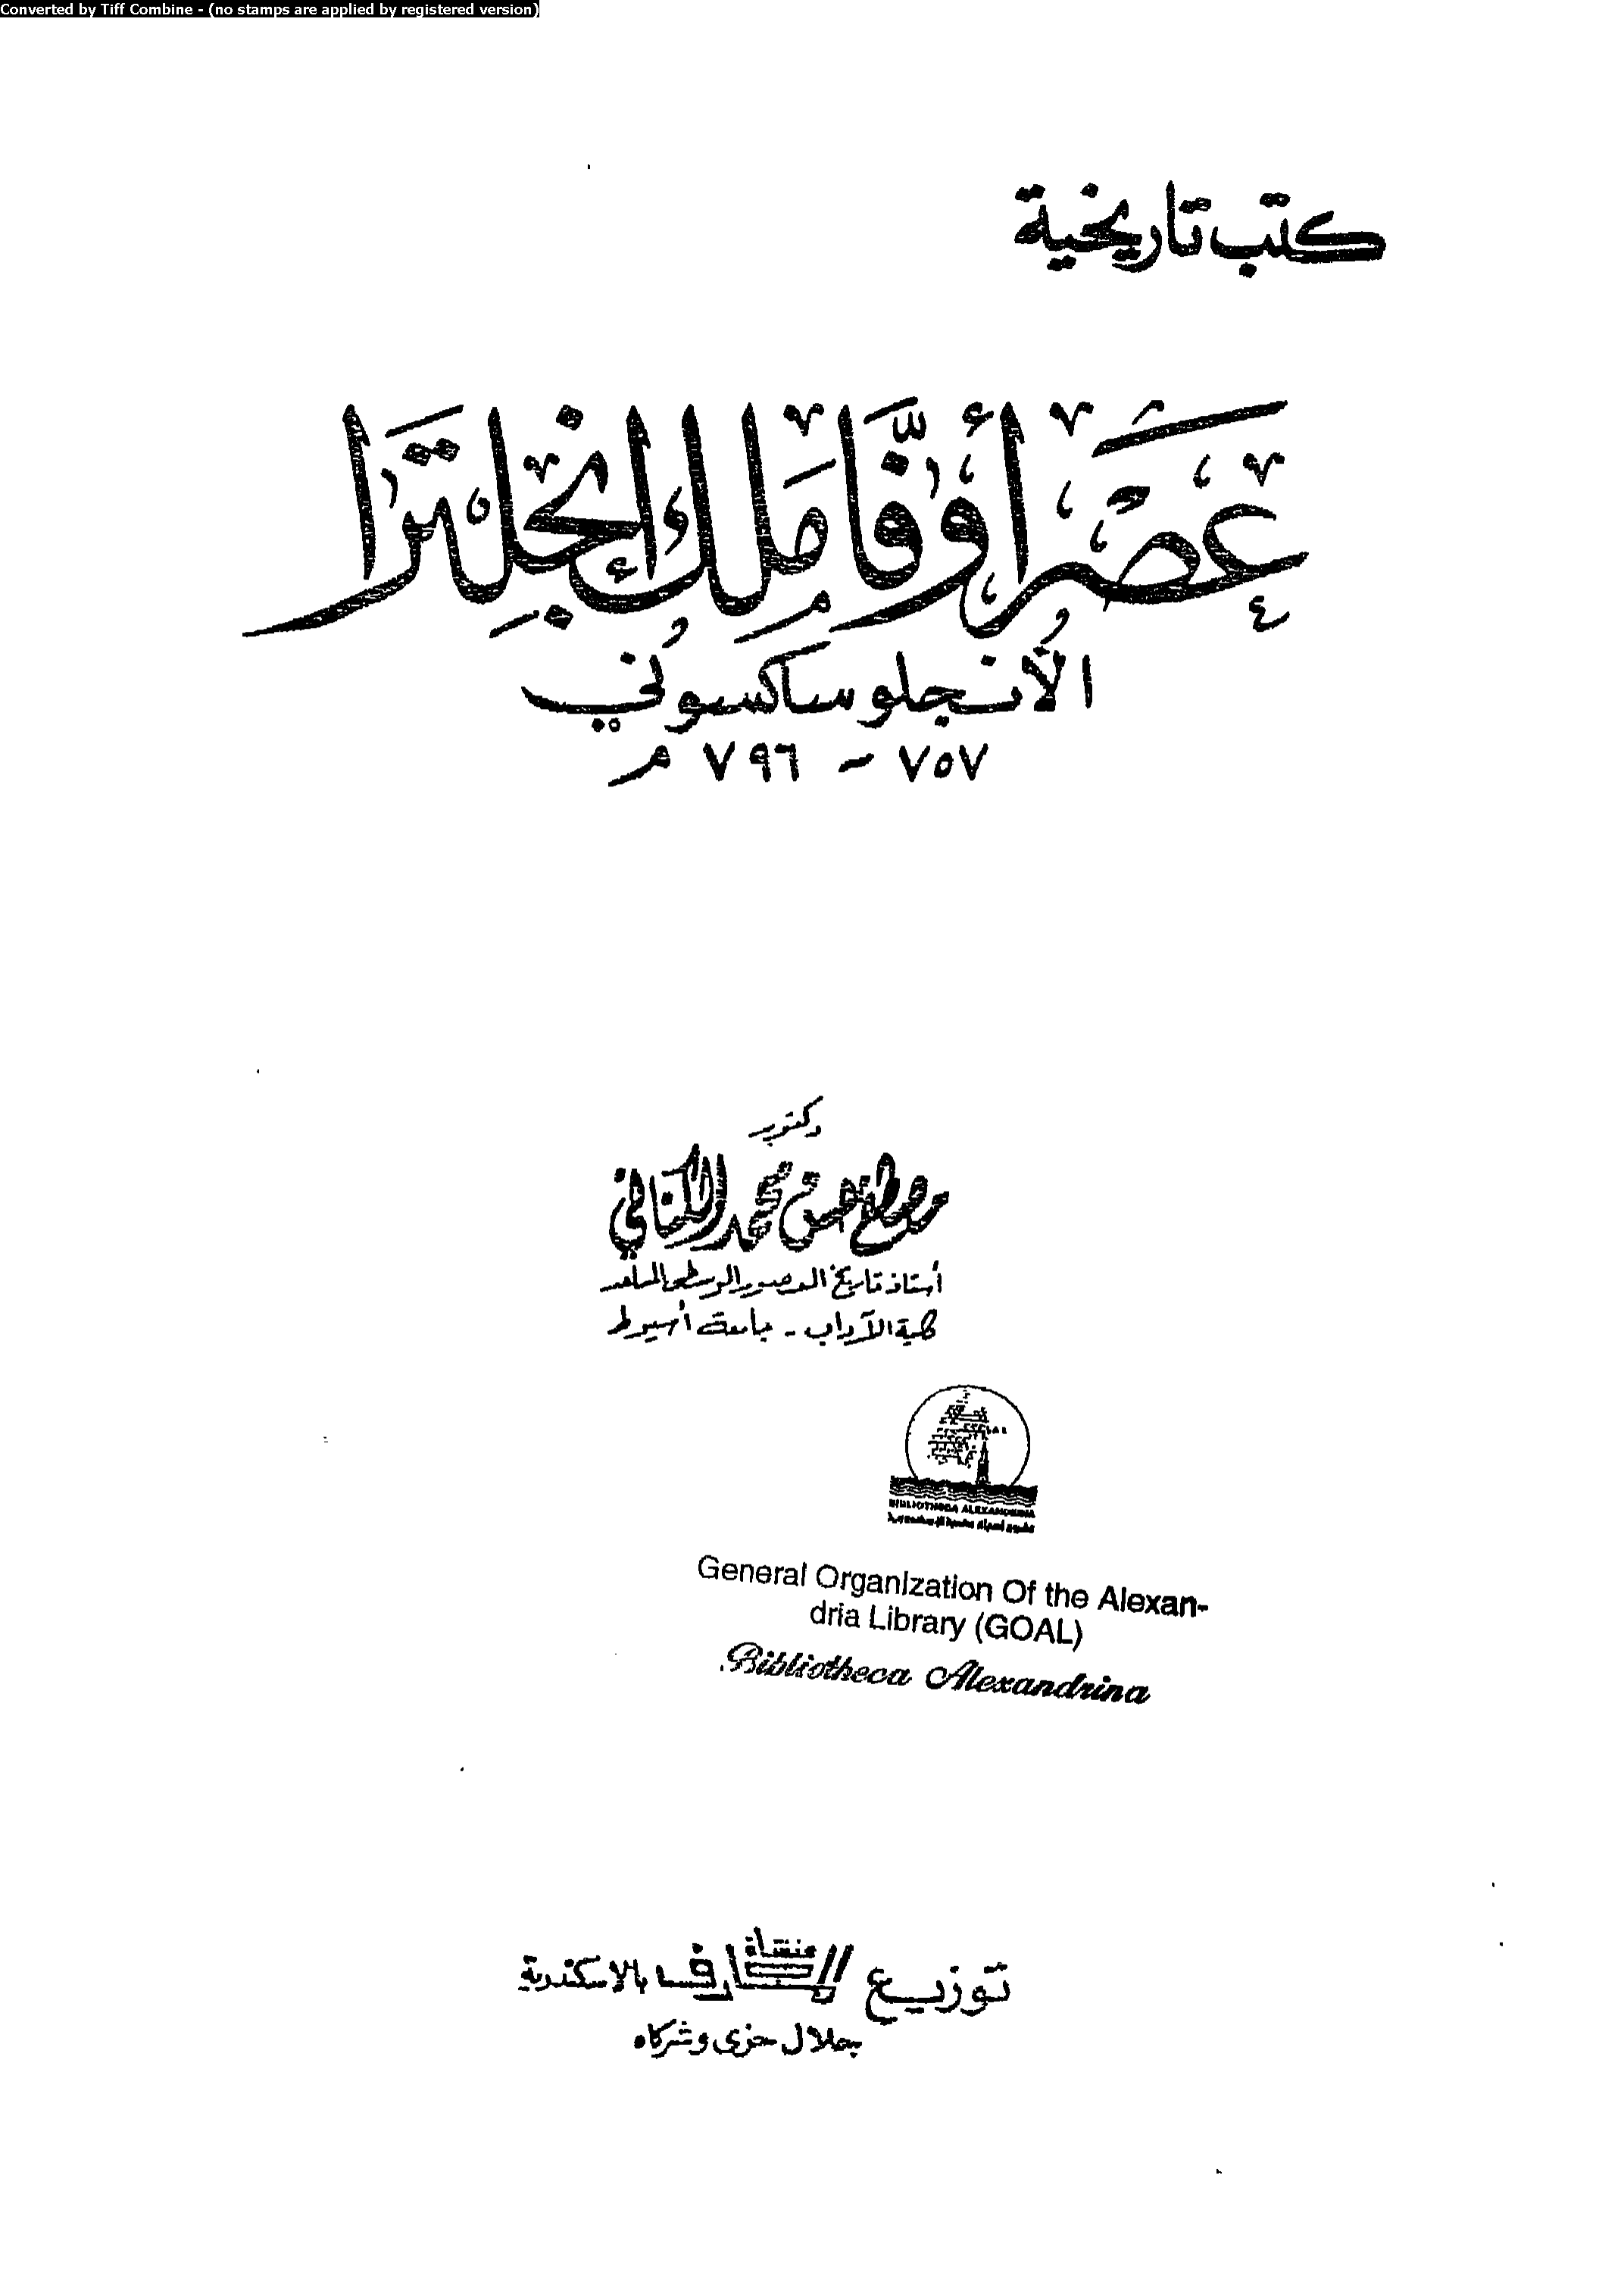 Converted by Tiff Combine - (no stamps are applied by registered version)
كتب تاريخية
عَصْرُ أُوفَّا مَلِك إنجلِترَا
الأنجلو ساكسوني
٧٥٧ - ٧٩٦ م
دكتور
مصطفى حسن محمد الكناني
أستاذ تاريخ العصور الوسطى المساعد
كلية الآداب - جامعة أسيوط
BIBLIOTHECA ALEXANDRINA
General Organization Of the Alexan-
dria Library (GOAL)
Bibliotheca Alexandrina
توزيع منشأة المعارف بالاسكندرية
جلال حزى وشركاه